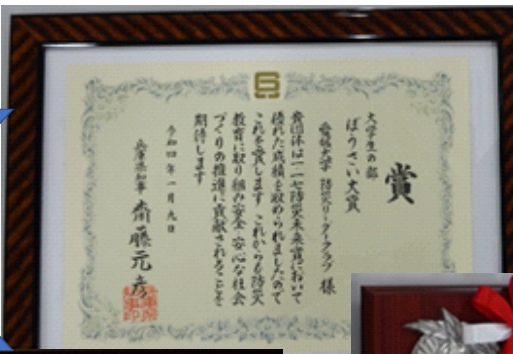 賞
大学生の部
ぼうさい大賞
愛媛大学 防災リーダークラブ 様
貴団体は一・一七防災未来賞において
優れた成績を収められましたので
これを賞します これからも防災
教育に取り組み安全・安心な社会
づくりの推進に貢献されることを
期待します
令和四年一月九日
兵庫県知事 齋藤元彦